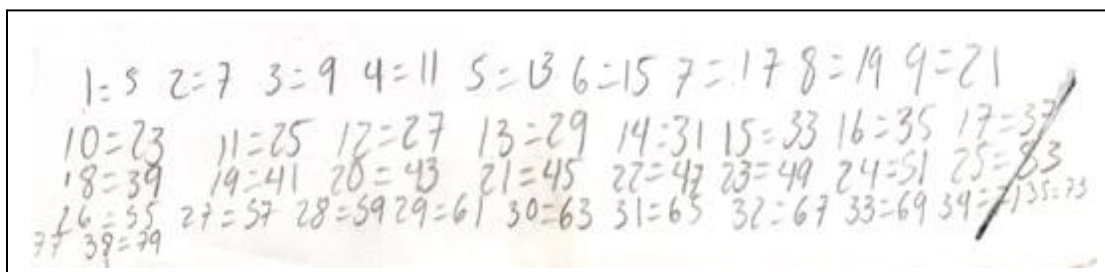 1=5 2=7 3=9 4=11 5=13 6=15 7=17 8=19 9=21
10=23 11=25 12=27 13=29 14=31 15=33 16=35 17=37
18=39 19=41 20=43 21=45 22=47 23=49 24=51 25=53
26=55 27=57 28=59 29=61 30=63 31=65 32=67 33=69 34=71 35=73
77 38=79